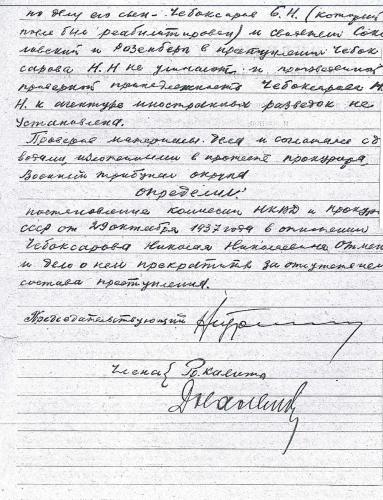 по делу его сын - Чебоксаров Б.Н. (который
позже был реабилитирован) и свидетели Соко
ловский и Розенберг в преступлении Чебок
сарова Н.Н не уличают и произведенной
проверкой принадлежность Чебоксарова Н.
Н. к агентуре иностранных разведок не
установлена.
Проверив материалы дела и соглашаясь с в
водами, изложенными в протесте прокурора,
Военный трибунал округа
определил:
постановление комиссии НКВД и прокур
СССР от 29 октября 1937 года в отношении
Чебоксарова Николая Николаевича отмен
и дело о нем прекратить за отсутствием
состава преступления.
Председательствующий
Члены